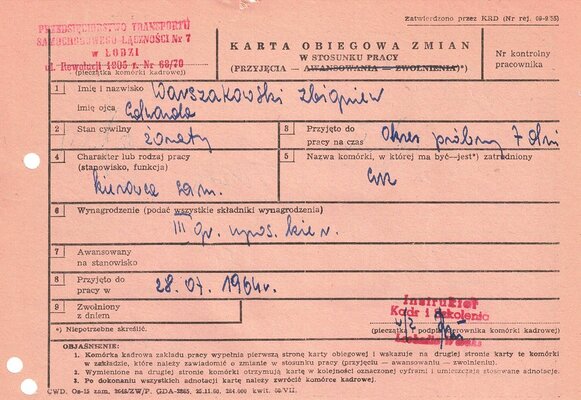 Zatwierdzono przez KRD (Nr rej. 09-9/55)
PRZEDSIĘBIORSTWO TRANSPORTU
SAMOCHODOWEGO ŁĄCZNOŚCI Nr 7
w ŁODZI
ul. Rewolucji 1905 r. Nr 68/70
(pieczątka komórki kadrowej)
KARTA OBIEGOWA ZMIAN
W STOSUNKU PRACY
(PRZYJĘCIA — AWANSOWANIA — ZWOLNIENIA)*)
Nr kontrolny
pracownika
1 Imię i nazwisko Warszakowski Zbigniew
imię ojca Edwarda
2 Stan cywilny żonaty
3 Przyjęto do
pracy na czas okres próbny 7 dni
4 Charakter lub rodzaj pracy
(stanowisko, funkcja)
kierowca sam.
5 Nazwa komórki, w której ma być—jest*) zatrudniony
6 Wynagrodzenie (podać wszystkie składniki wynagrodzenia)
III gr. upos. kier.
7 Awansowany
na stanowisko
8 Przyjęto do
pracy w 28.07.1964r.
9 Zwolniony
z dniem
Instruktor
Kadr i Szkolenia
*) Niepotrzebne skreślić.
(pieczątka i podpis kierownika komórki kadrowej)
OBJAŚNIENIE:
1. Komórka kadrowa zakładu pracy wypełnia pierwszą stronę karty obiegowej i wskazuje na drugiej stronie karty te komórki
w zakładzie, które należy zawiadomić o zmianie w stosunku pracy (przyjęciu — awansowaniu — zwolnieniu).
2. Wymienione na drugiej stronie komórki otrzymują kartę w kolejności oznaczonej cyframi i umieszczają stosowane adnotacje.
3. Po dokonaniu wszystkich adnotacji kartę należy zwrócić komórce kadrowej.
CWD. Os-15 zam. 2645/ZW/P. GDA-3285, 25.11.60, 264.000 kwit. 60/VII.